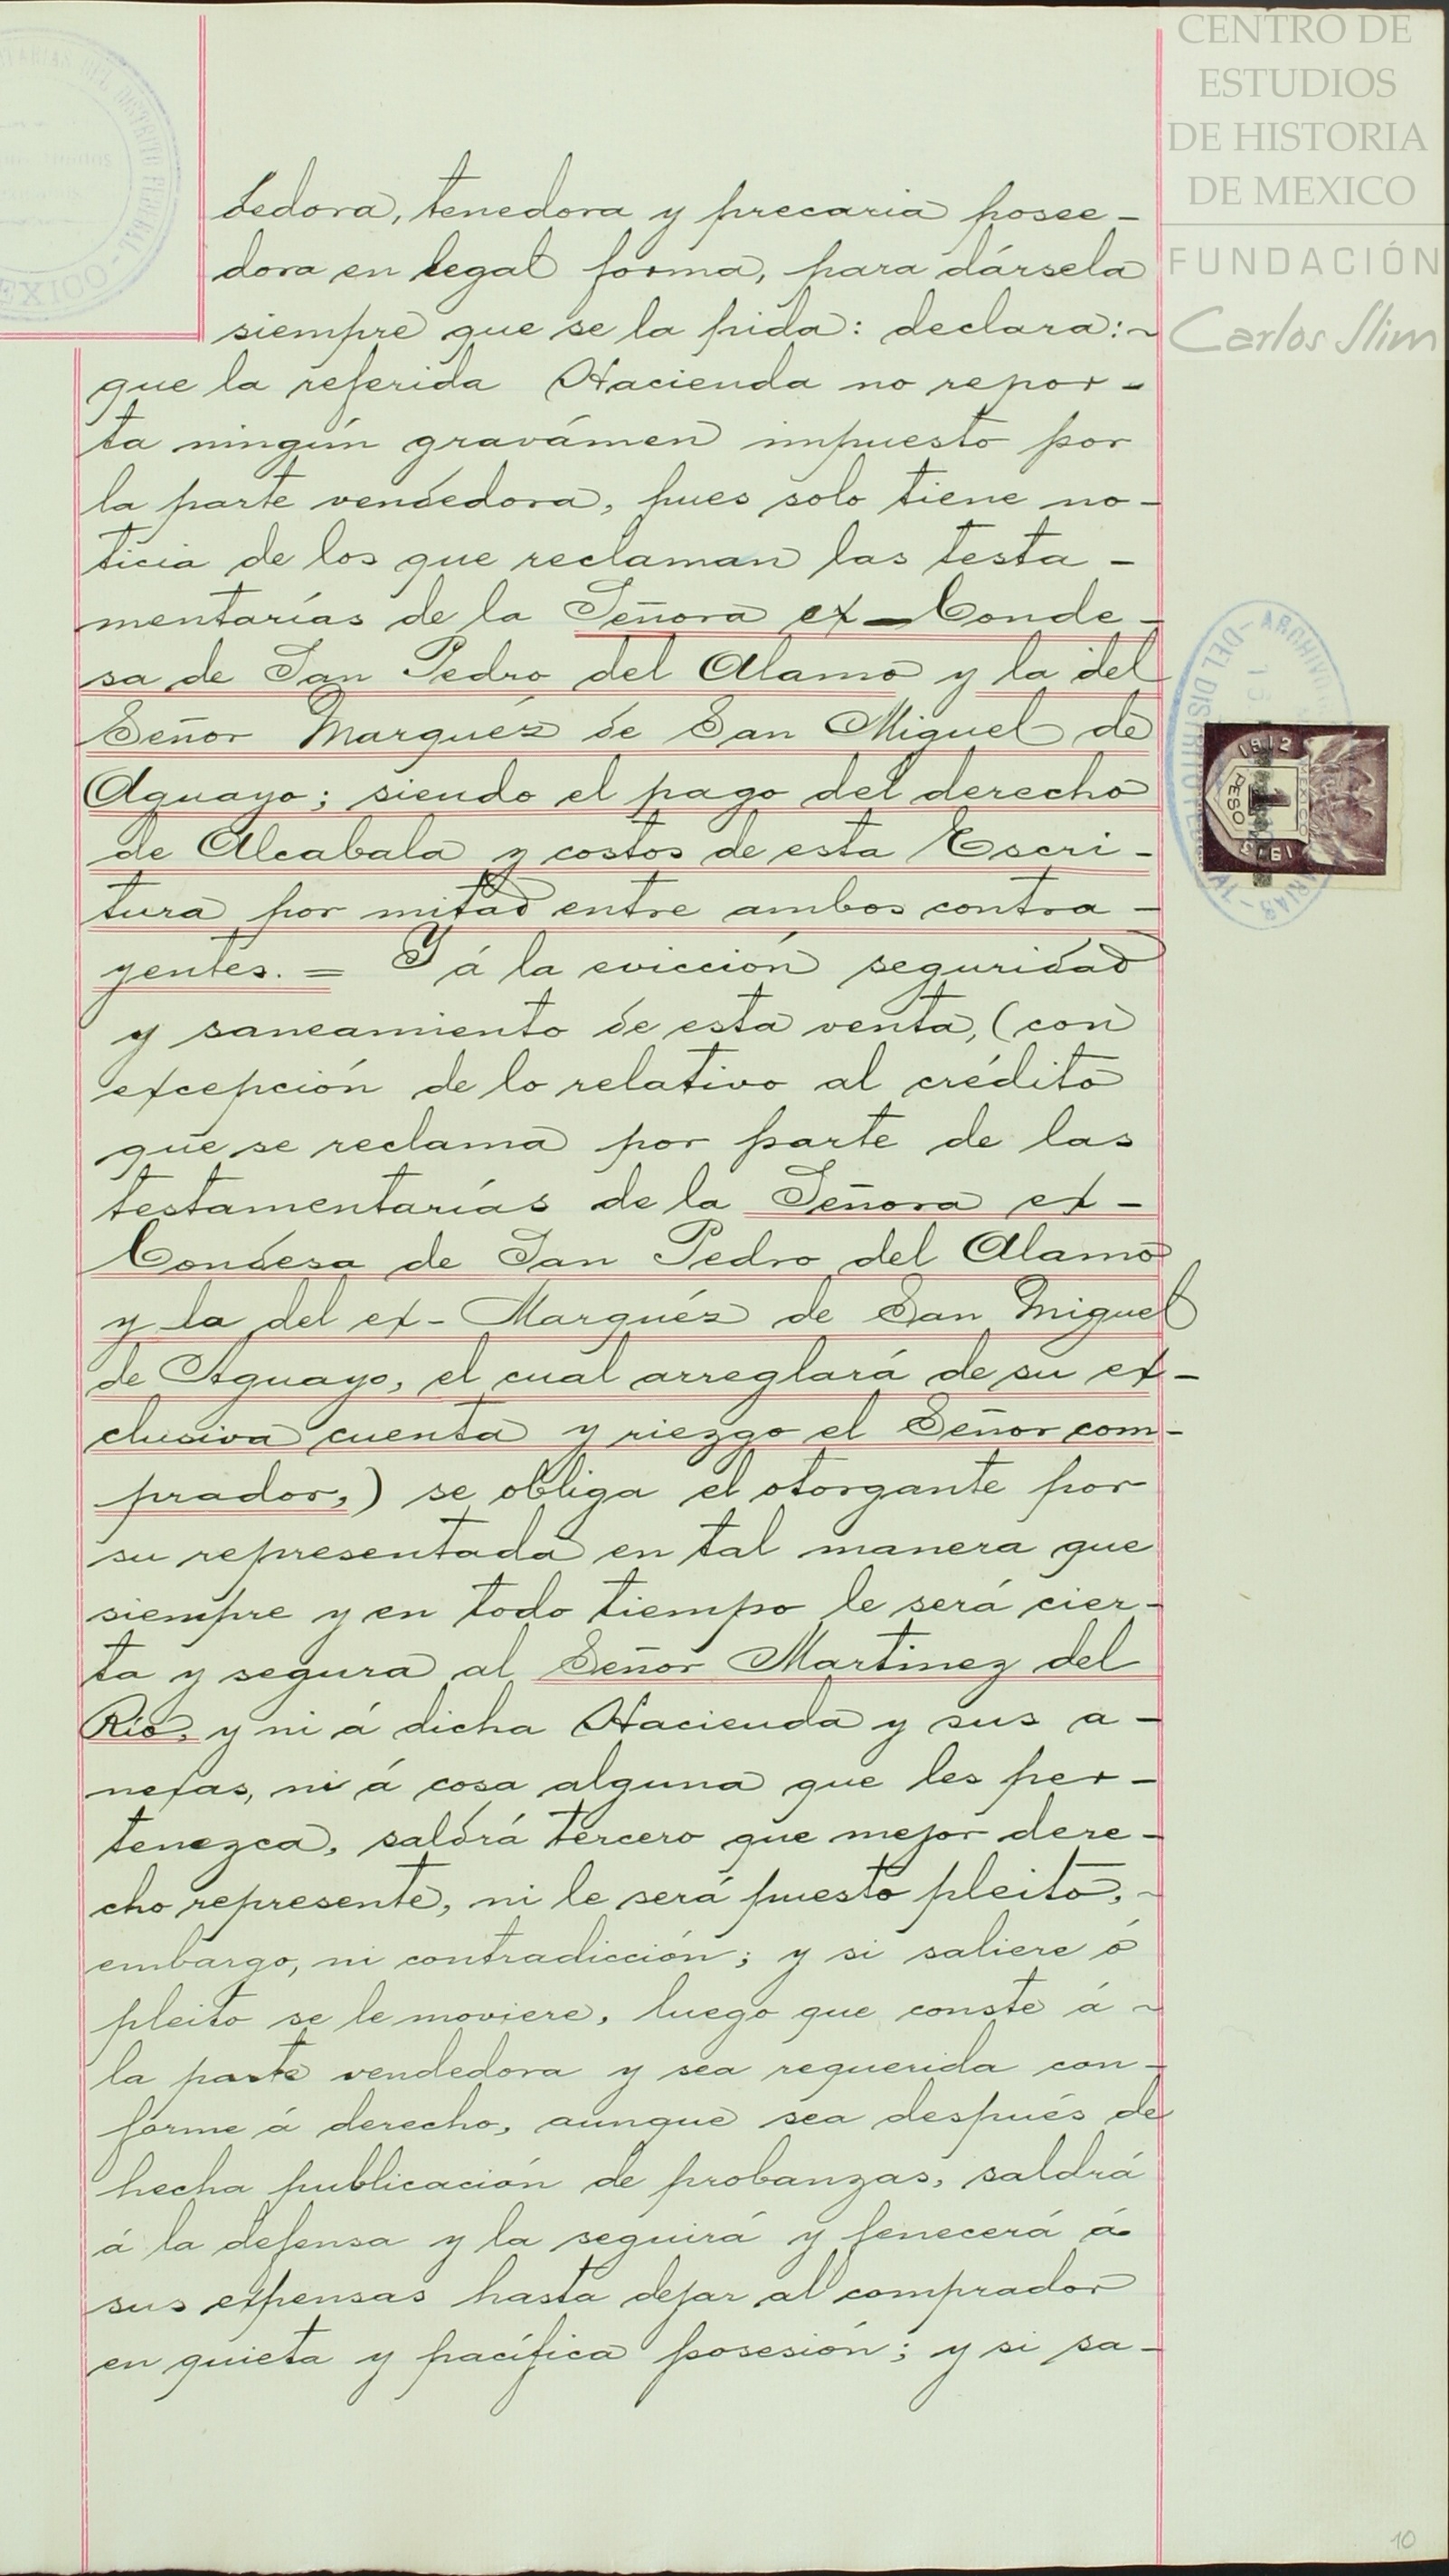 CENTRO DE
ESTUDIOS
DE HISTORIA
DE MEXICO
FUNDACIÓN
Carlos Slim
dedora, tenedora y precaria posee-
dora en legal forma, para dársela
siempre que se la pida: declara:~
que la referida Hacienda no repor-
ta ningún gravámen impuesto por
la parte vendedora, pues solo tiene no-
ticia de los que reclaman las testa-
mentarías de la Señora ex-Conde-
sa de San Pedro del Alamo y la del
Señor Marqués de San Miguel de
Aguayo; siendo el pago del derecho
de Alcabala y costos de esta Escri-
tura por mitad entre ambos contra-
yentes. = Y á la evicción seguridad
y saneamiento de esta venta, (con
excepción de lo relativo al crédito
que se reclama por parte de las
testamentarías de la Señora ex-
Condesa de San Pedro del Alamo
y la del ex-Marqués de San Miguel
de Aguayo, el cual arreglará de su ex-
clusiva cuenta y riezgo el Señor com-
prador,) se obliga el otorgante por
su representada en tal manera que
siempre y en todo tiempo le será cier-
ta y segura al Señor Martinez del
Río, y ni á dicha Hacienda y sus a-
nexas, ni á cosa alguna que les per-
tenezca, saldrá tercero que mejor dere-
cho represente, ni le será puesto pleito,~
embargo, ni contradicción; y si saliere ó
pleito se le moviere, luego que conste á~
la parte vendedora y sea requerida con-
forme á derecho, aunque sea después de
hecha publicación de probanzas, saldrá
á la defensa y la seguirá y fenecerá á
sus expensas hasta dejar al comprador
en quieta y pacífica posesión; y si sa-
1912
MEXICO
1
PESO
1913
10